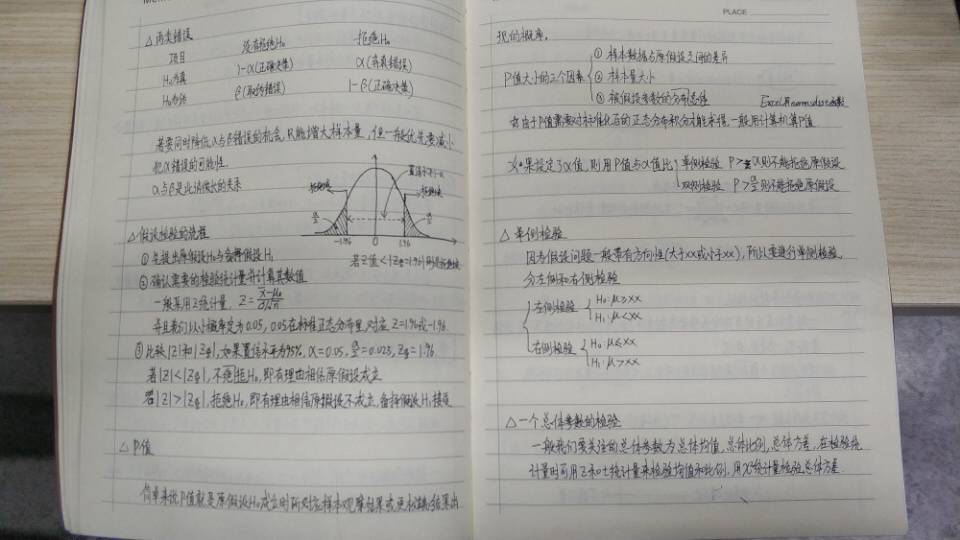 △两类错误
项目 没有拒绝H₀ 拒绝H₀
H₀为真 1-α(正确决策) α(弃真错误)
H₀为伪 β(取伪错误) 1-β(正确决策)
若要同时降低α与β错误的机会,只能增大样本量,但一般优先要减小
犯α错误的可能性.
α与β是此消彼长的关系
拒绝域
置信水平1-α
拒绝域
α/2 α/2
-1.96 0 1.96
△假设检验的流程
①先提出原假设H₀与备择假设H₁
②确认需要的检验统计量并计算其数值
一般采用Z统计量, Z=(x̄-μ₀)/(σ/√n)
并且我们以小概率定为0.05, 0.05在标准正态分布里,对应Z=1.96或-1.96.
③比较|Z|和|Zα/2|,如果置信水平为95%, α=0.05, α/2=0.025, Zα/2=1.96
若|Z|<|Zα/2|,不能拒H₀,即有理由相信原假设成立
若|Z|>|Zα/2|,拒绝H₀,即有理由相信原假设不成立,备择假设H₁接受
△P值
简单来说P值就是原假设H₀成立时所对应样本观察结果或更极端结果出
PLACE
现的概率.
P值大小的三个因素
①样本数据与原假设之间的差异
②样本量大小
③被假设参数的分布态
Excel用normsdist函数
由于P值需要对标准化后的正态分布积分才能求得,一般用计算机算P值
如果设定了α值,则用P值与α值比
单侧检验 P>α则不能拒绝原假设
双侧检验 P>α/2则不能拒绝原假设
△单侧检验
因为假设问题一般带有方向性(大于xx或小于xx),所以要进行单侧检验.
分左侧和右侧检验
左侧检验 H₀:μ≥xx
H₁:μ<xx
右侧检验 H₀:μ≤xx
H₁:μ>xx
△一个总体参数的检验
一般我们要关注的总体参数为总体均值,总体比例,总体方差,在检验统
计量时可用Z和t统计量来检验均值和比例,用χ²统计量检验总体方差.